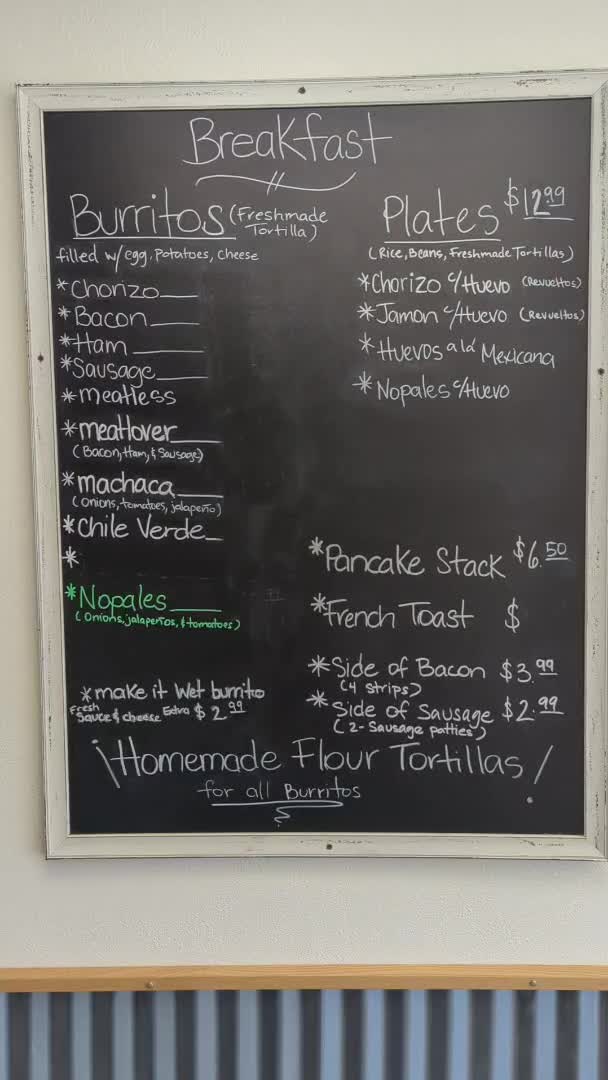 Breakfast
Burritos (Freshmade
Tortilla)
filled w/egg, Potatoes, Cheese
*Chorizo___
*Bacon___
*Ham___
*Sausage___
*meatless
*meatlover___
(Bacon, Ham, & Sausage)
*machaca___
(Onions, tomatoes, jalapeño)
*Chile Verde_
*
*Nopales___
(Onions, jalapeños, & tomatoes)
*make it Wet burrito
Fresh Sauce & cheese Extra $2.99
Plates $12.99
(Rice, Beans, Freshmade Tortillas)
*Chorizo c/Huevo (Revueltos)
*Jamon c/Huevo (Revueltos)
*Huevos a la Mexicana
*Nopales c/Huevo
*Pancake Stack $6.50
*French Toast $
*Side of Bacon $3.99
(4 strips)
*Side of Sausage $2.99
(2-Sausage patties)
¡Homemade Flour Tortillas!
for all Burritos